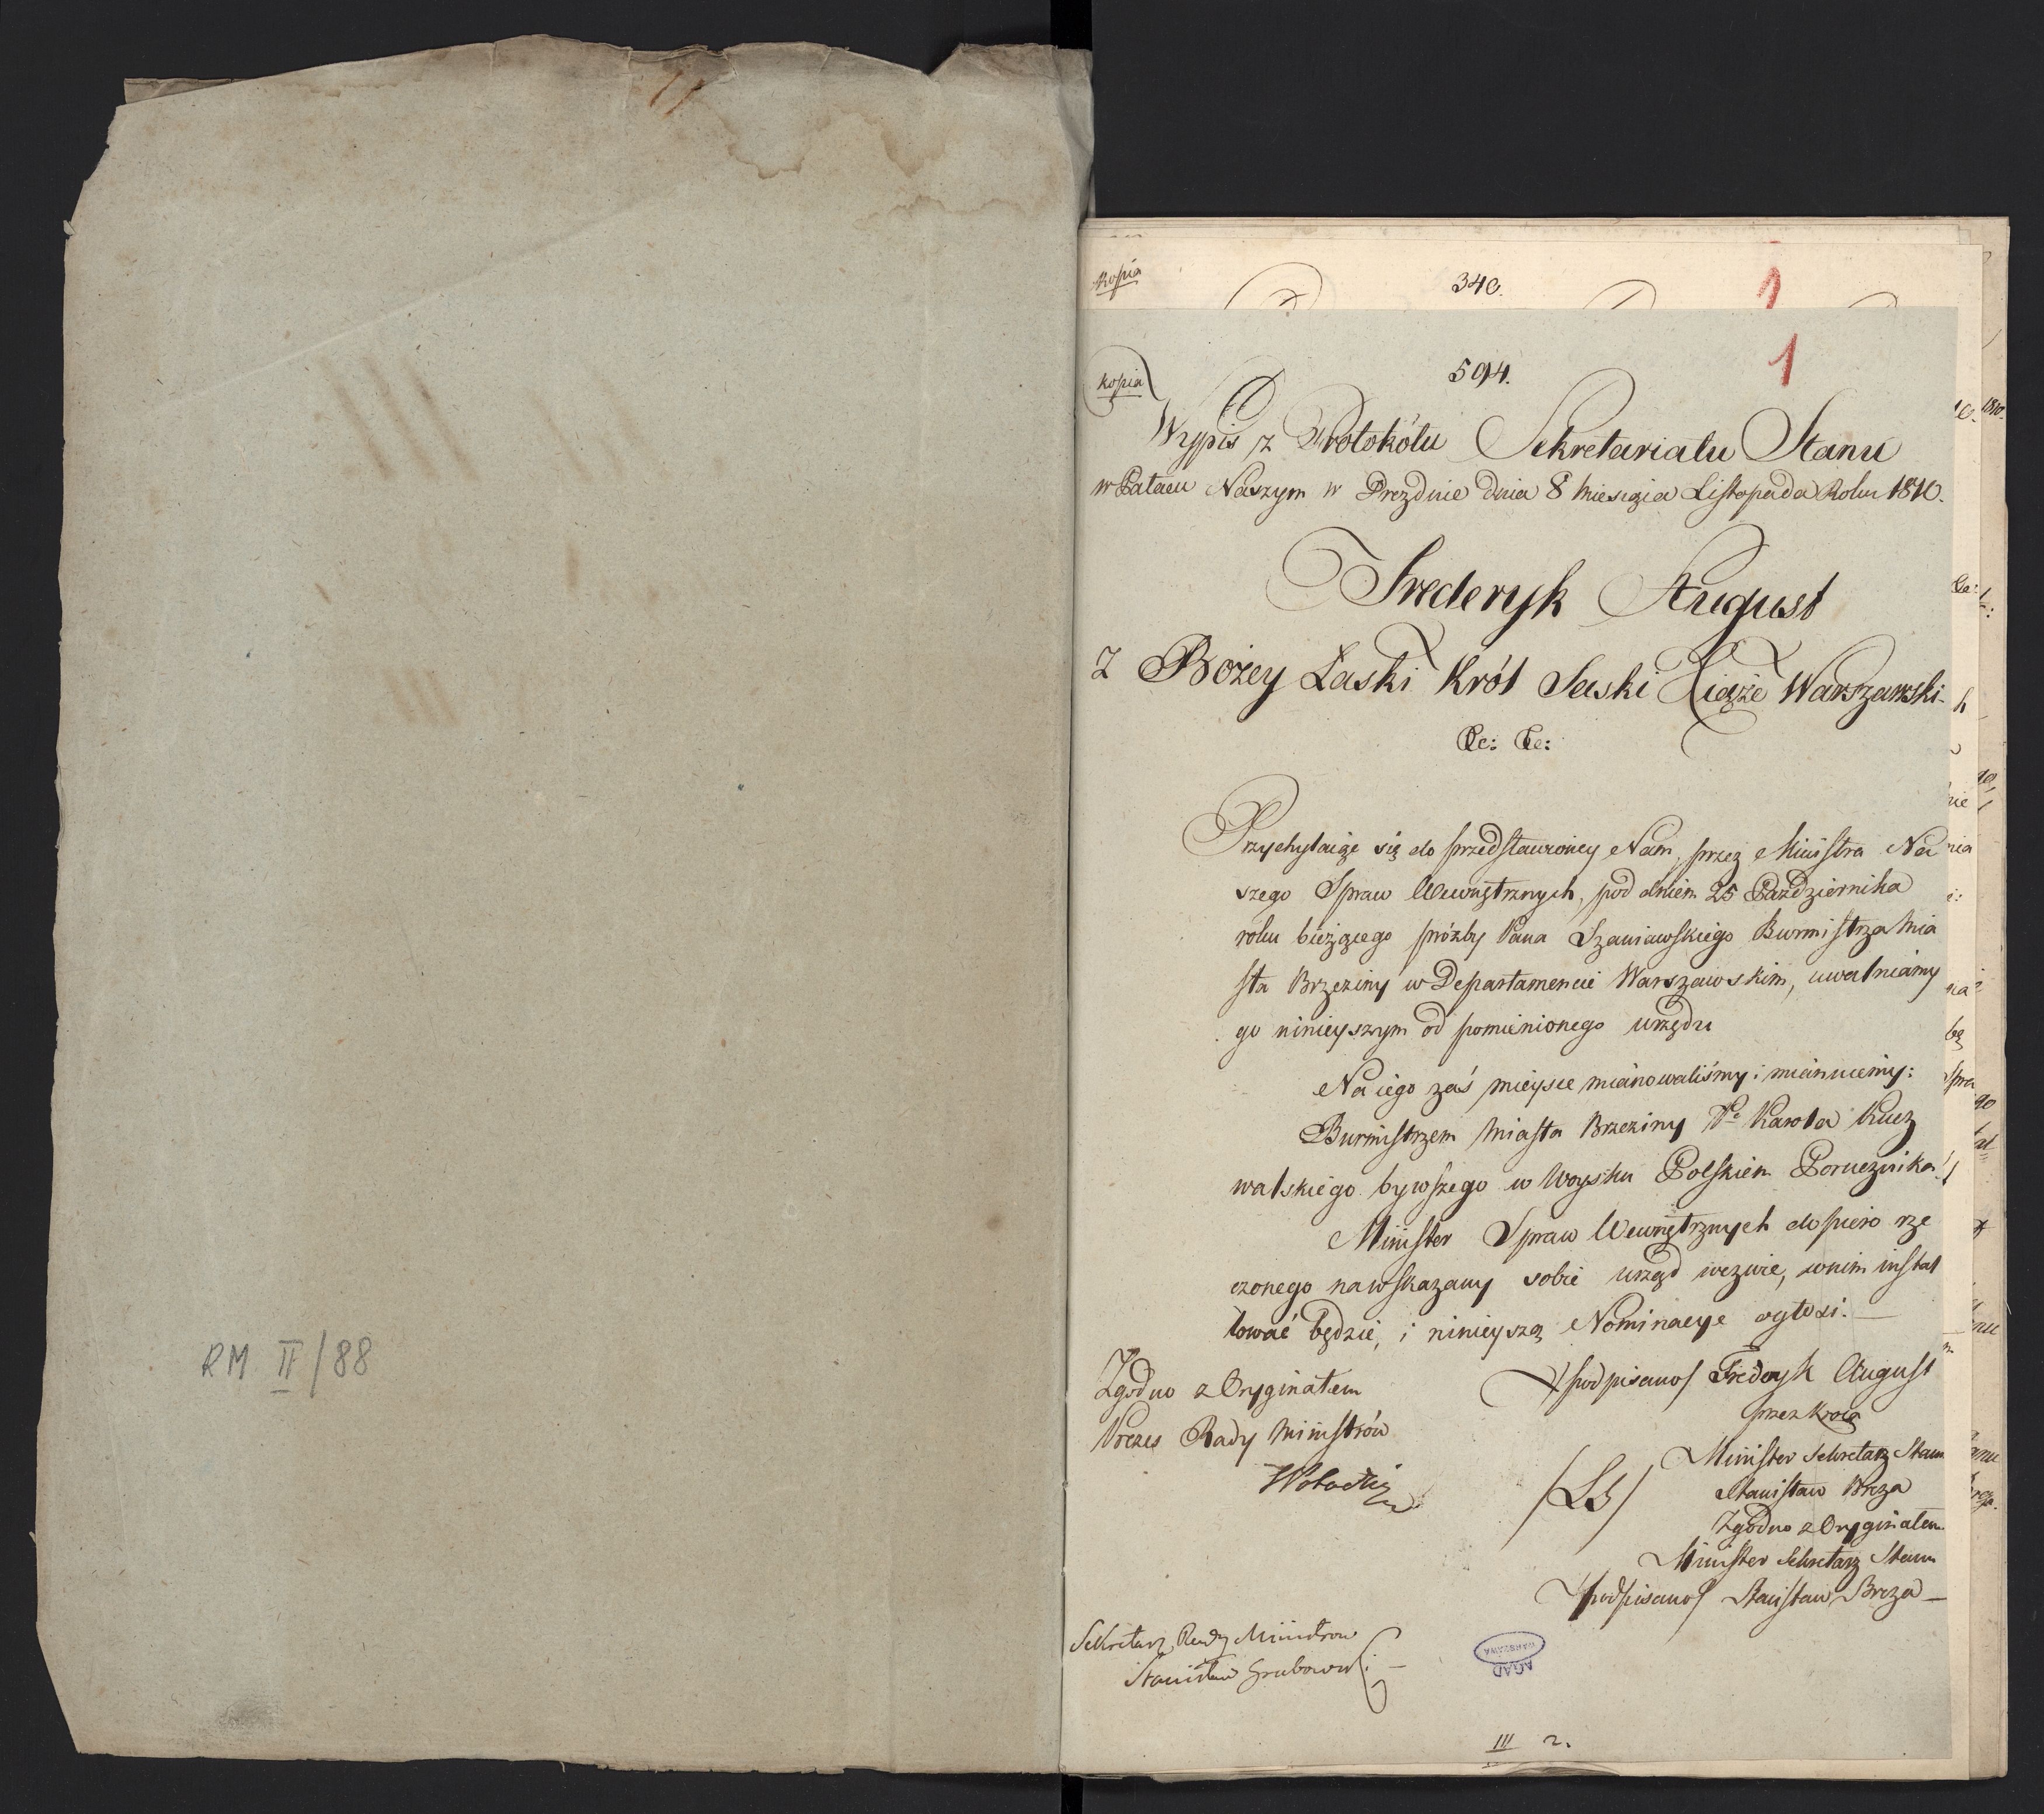 RM II/88
Kopia
340.
1
1
kopia
594.
Wypis z Protokółu Sekretariatu Stanu
w Pałacu Naszym w Dreznie dnia 8 Miesiąca Listopada Roku 1810.
Frederyk August
Z Bożey Łaski Król Saski Xiąże Warszawski
&c: &c:
Przychylaiąc się do przedstawioney Nam, przez Ministra Na
szego Spraw Wewnętrznych, pod dniem 25 Października
roku bieżącego prózby Pana Szaniawskiego Burmistrza Mia
sta Brzeziny w Departamencie Warszawskim, uwalniamy
go ninieyszym od pomienionego urzędu
Na iego zaś mieysce mianowaliśmy i mianuiemy:
Burmistrzem Miasta Brzeziny Pa Karola Kucz
walskiego bywszego w Woysku Polskiem Porucznika
Minister Spraw Wewnętrznych dopiero rze
czonego na wskazany sobie urząd wezwie, w nim instal
lować będzie, i ninieyszą Nominacye ogłosi. —
Zgodno z Oryginałem
Prezes Rady Ministrów
/podpisano/ Frederyk August
przez Króla
Minister Sekretarz Stanu
/LS/
Stanisław Breza
Zgodno z Oryginałem
Minister Sekretarz Stanu
/podpisano/ Stanisław Breza —
Sekretarz Rady Ministrow
Stanisław Grabowski —
AGAD
WARSZAWA
III 2.